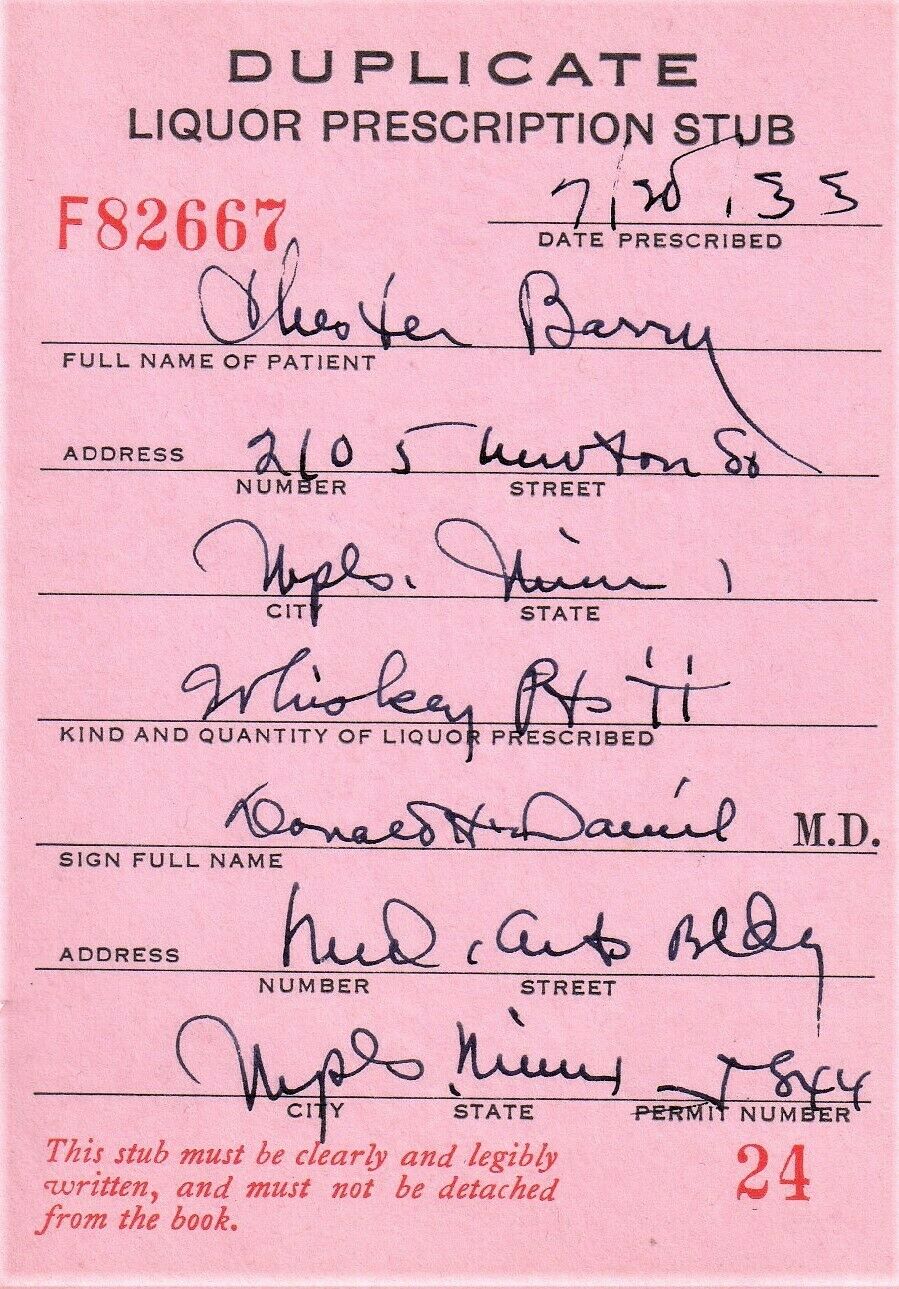 DUPLICATE
LIQUOR PRESCRIPTION STUB
F82667
7/20/33
DATE PRESCRIBED
Chester Barry
FULL NAME OF PATIENT
ADDRESS 2105 Newton So
NUMBER STREET
Mpls. Minn
CITY STATE
Whiskey Pts II
KIND AND QUANTITY OF LIQUOR PRESCRIBED
Donald H. Daniel M.D.
SIGN FULL NAME
ADDRESS Med. Arts Bldg
NUMBER STREET
Mpls Minn 844
CITY STATE PERMIT NUMBER
This stub must be clearly and legibly
written, and must not be detached
from the book.
24